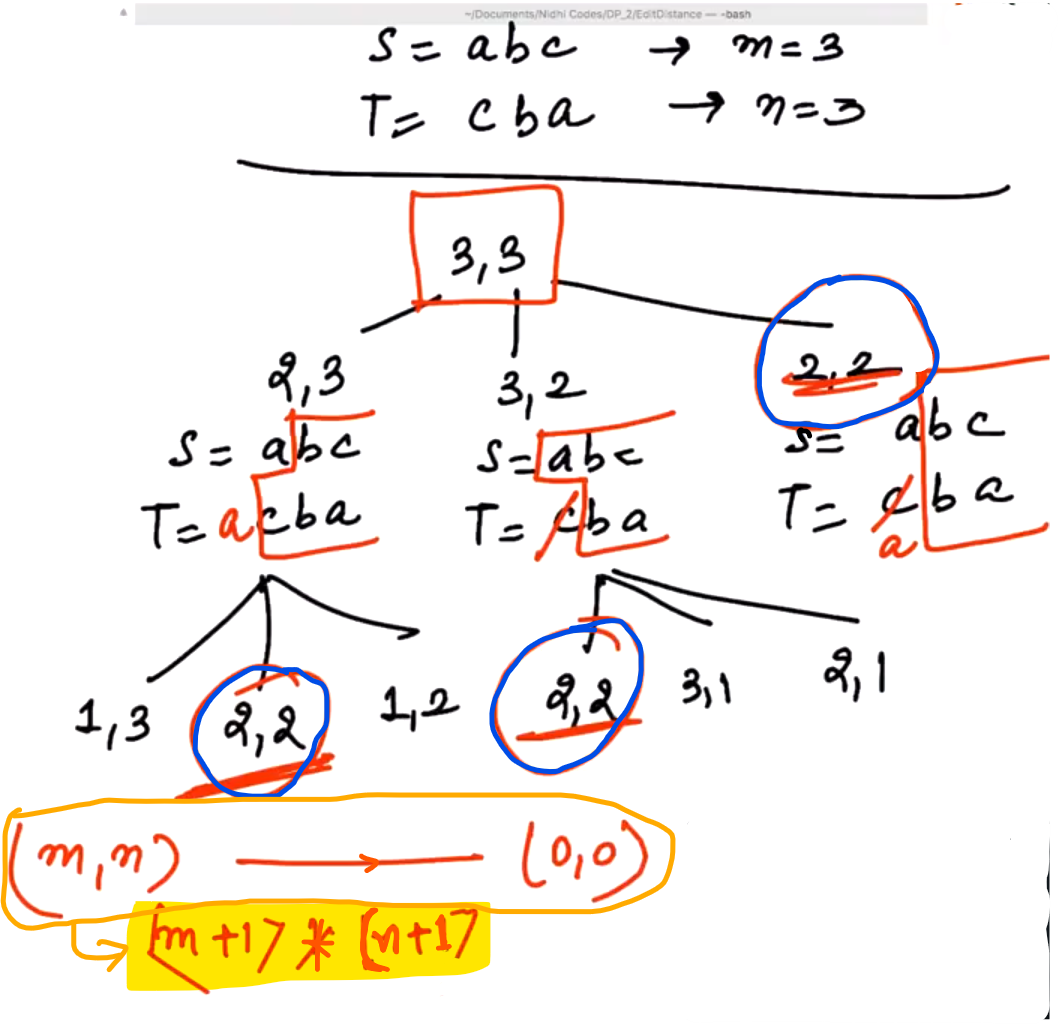 ~/Documents/Nidhi Codes/DP_2/EditDistance — -bash
S = abc → m=3
T= cba → n=3
3,3
2,3 3,2 2,2
S = abc S=abc S= abc
T= acba T= cba T= cba
a
1,3 2,2 1,2 2,2 3,1 2,1
(m,n) → (0,0)
(m+1) * (n+1)